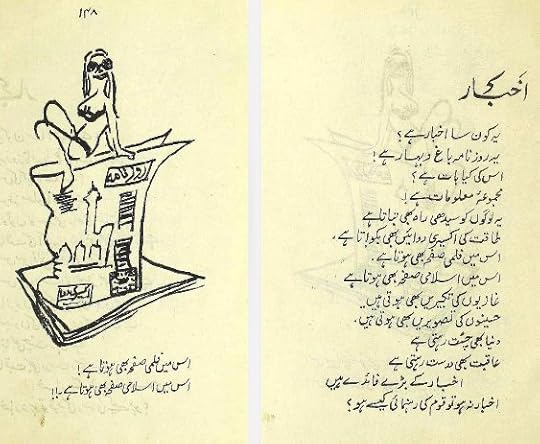 اخبار
یہ کون سا اخبار ہے؟
یہ روزنامہ باغ و بہار ہے!
اس کی کیا بات ہے؟
مجموعۂ معلومات ہے!
یہ لوگوں کو سیدھی راہ بھی بتاتا ہے
طاقت کی اکسیری دوائیں بھی بکواتا ہے۔
اس میں فلمی صفحہ بھی ہوتا ہے۔
اس میں اسلامی صفحہ بھی ہوتا ہے
غازیوں کی تکبیریں بھی ہوتی ہیں۔
حسینوں کی تصویریں بھی ہوتی ہیں۔
دنیا بھی چست رہتی ہے
عاقبت بھی درست رہتی ہے
اخبار کے بڑے فائدے ہیں
اخبار نہ ہو تو قوم کی رہنمائی کیسے ہو؟
۱۴۸
روزنامہ
اس میں فلمی صفحہ بھی ہوتا ہے!
اس میں اسلامی صفحہ بھی ہوتا ہے۔!!